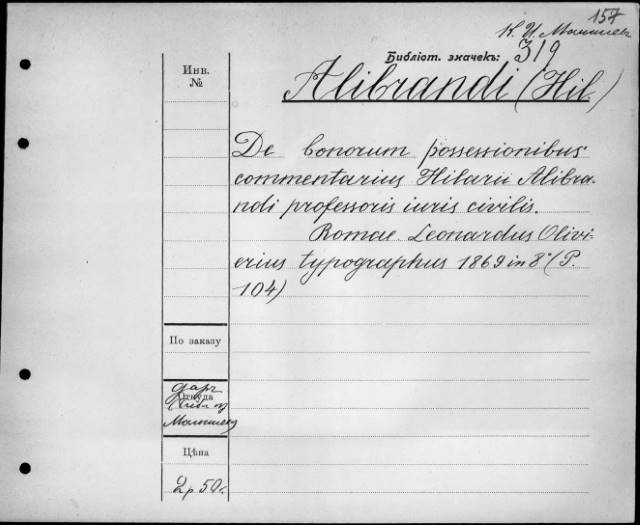 157
К. И. Малышев
Библіот. значекъ: 319
Инв.
№
Alibrandi (Hil.)
De bonorum possessionibus
commentarius Hilarii Alibra-
ndi professoris iuris civilis.
Romae. Leonardus Olivi-
erius typographus 1869 in 8° (P.
104)
По заказу
Откуда
даръ
Малышева
Цѣна
2 р 50 к.